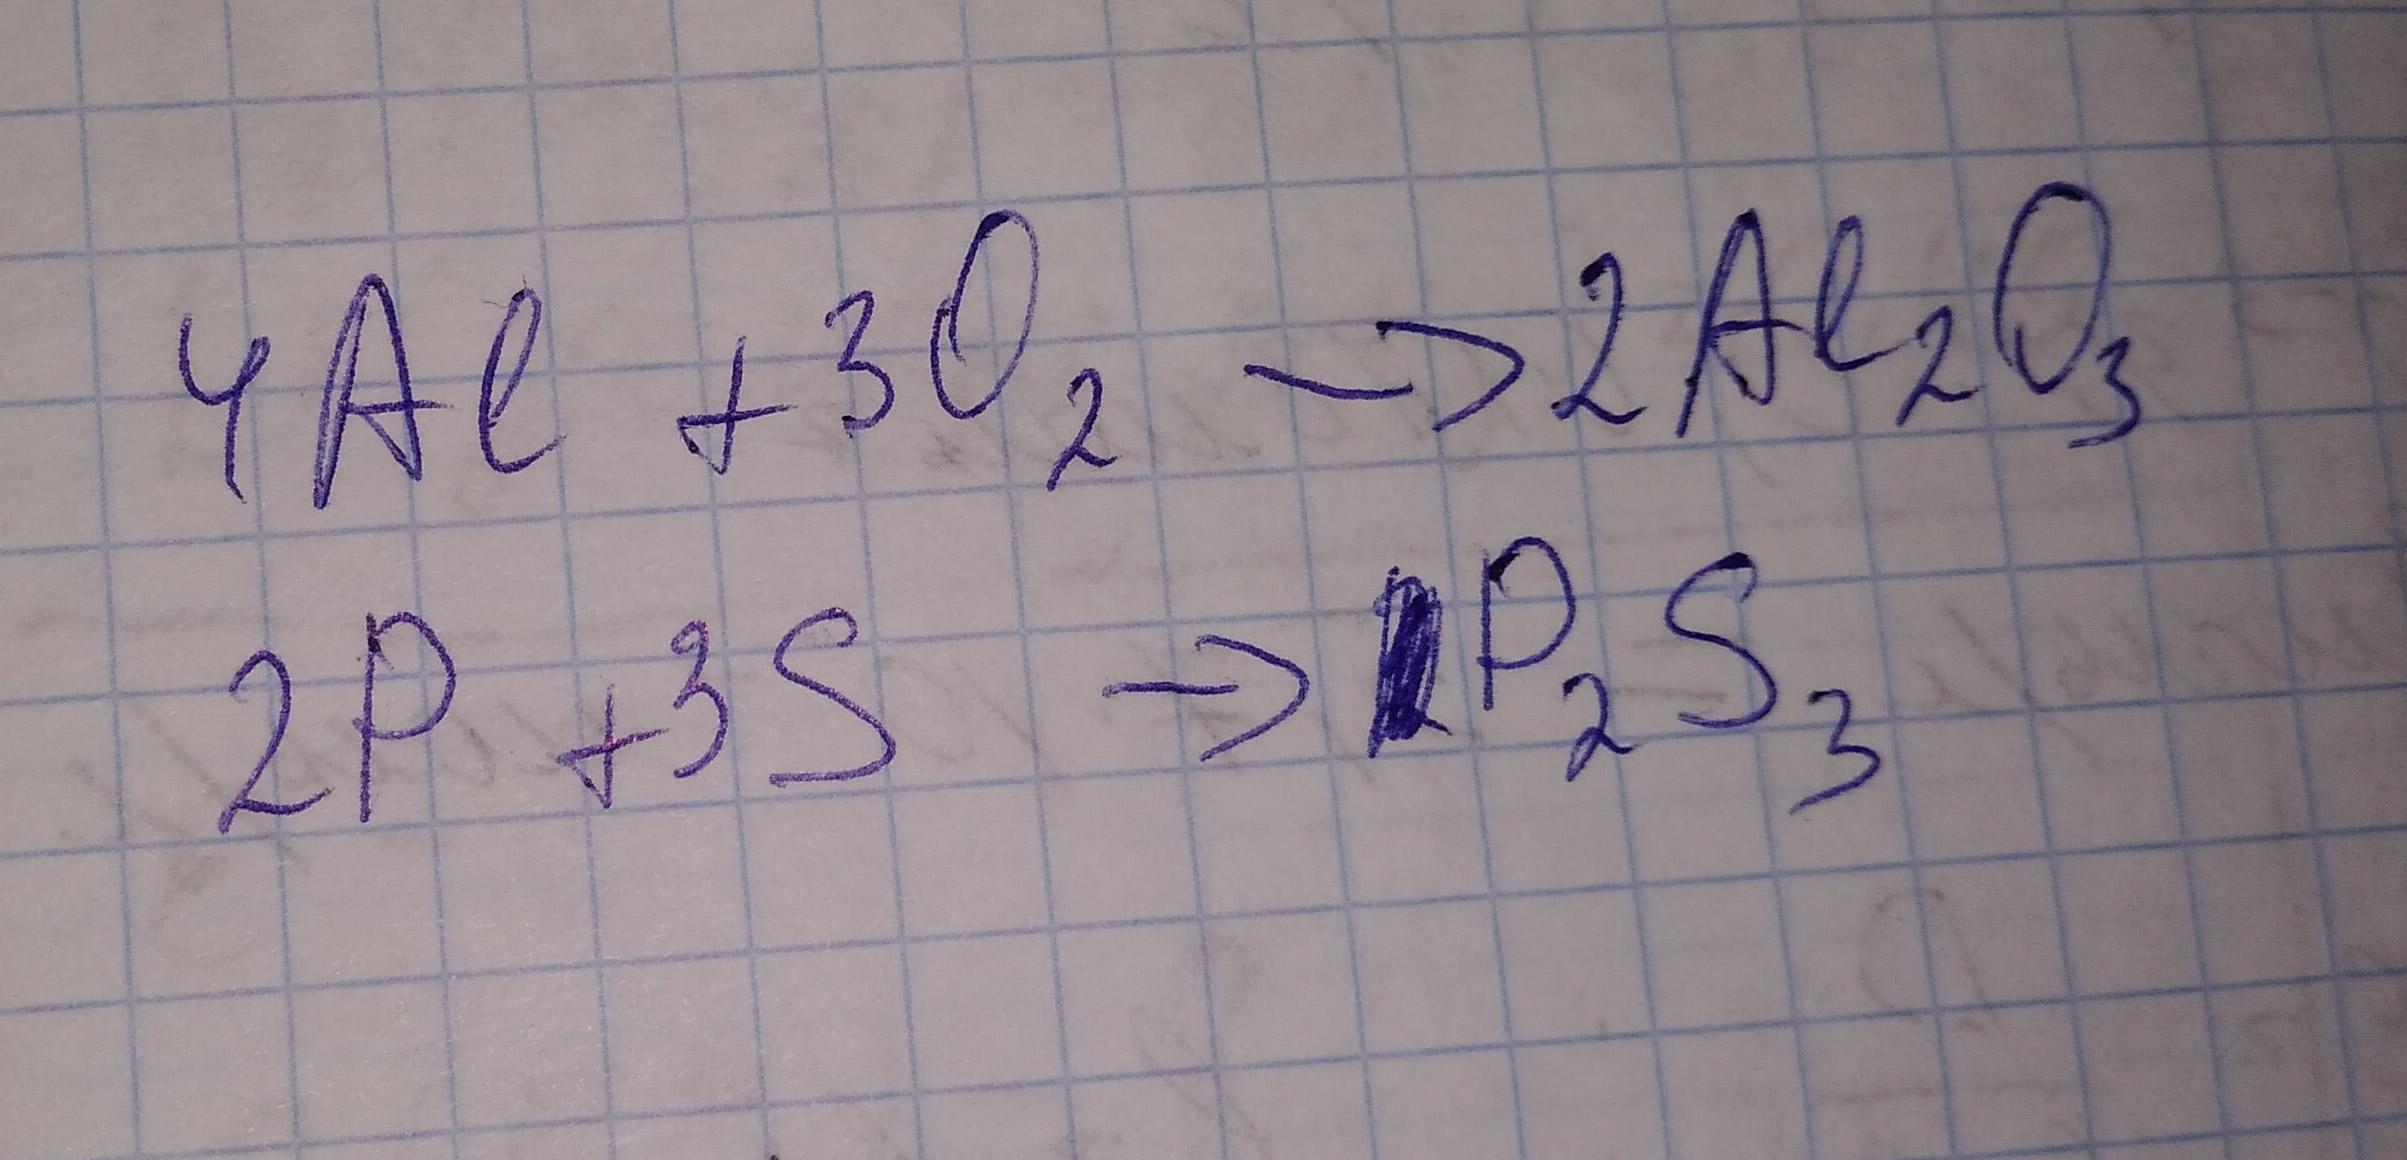 4Al + 3O₂ → 2Al₂O₃
2P + 3S → P₂S₃